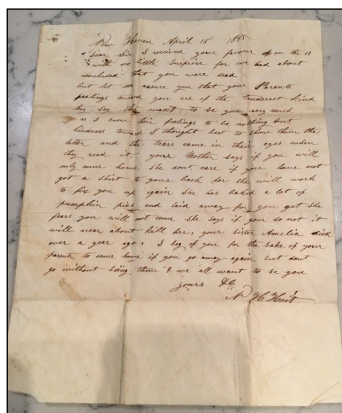 New Haven April 15 1895
Dear Sir I received your  on the 12
with no little Surprise for we had about
concluded that you were dead
but let me assure you that your Parents
feelings toward you are of the tenderest kind
they say they want to see you very much
as I knew their feelings to be nothing but
kindness toward I thought best to show them the
letter and the tears came in their eyes when
they read it, your Mother says if you will
only come home she dont care if you have not
got a shirt to your back for she will work
to fix you up again She has baked a lot of
pumpkin pies and laid away for you yet She
fears you will not come she says if you do not it
will near about kill her, your Sister Amelia died
over a year ago, I beg of you for the Sake of your
parents to come home if you go away again but dont
go without seing them & we all want to see you
yours &c
N H Hoit